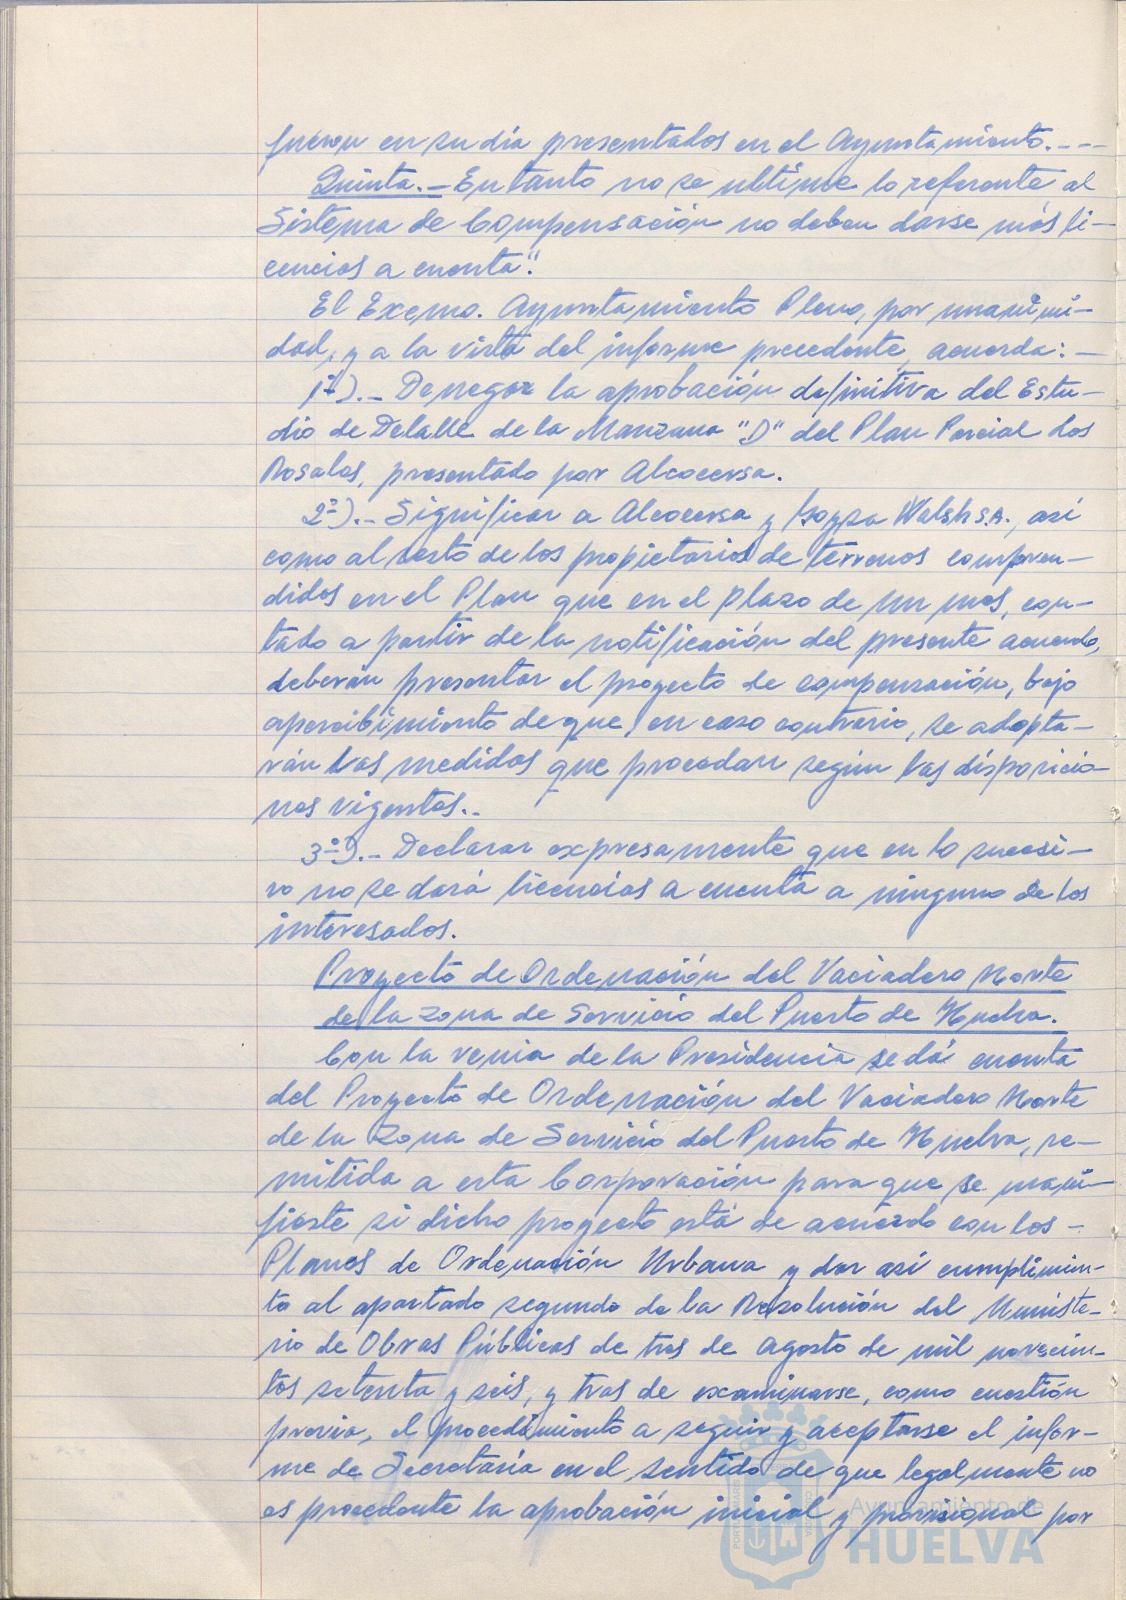 fueron en su día presentados en el Ayuntamiento.---
Quinta.- En tanto no se ultime lo referente al
Sistema de Compensación no deben darse más li-
cencias a cuenta".
El Excmo. Ayuntamiento Pleno, por unanimi-
dad, y a la vista del informe precedente, acuerda:-
1º).- Denegar la aprobación definitiva del Estu-
dio de Detalle de la Manzana "D" del Plan Parcial Los
Rosales, presentado por Alcocersa.
2º).- Significar a Alcocersa y Walsh S.A., así
como al resto de los propietarios de terrenos compren-
didos en el Plan que en el plazo de un mes, con-
tado a partir de la notificación del presente acuerdo,
deberán presentar el proyecto de compensación, bajo
apercibimiento de que, en caso contrario, se adopta-
rán las medidas que procedan según las disposicio-
nes vigentes.-
3º).- Declarar expresamente que en lo sucesi-
vo no se dará licencias a cuenta a ninguno de los
interesados.
Proyecto de Ordenación del Vaciadero Norte
de la Zona de Servicio del Puerto de Huelva.
Con la venia de la Presidencia se dá cuenta
del Proyecto de Ordenación del Vaciadero Norte
de la Zona de Servicio del Puerto de Huelva, re-
mitida a esta Corporación para que se mani-
fieste si dicho proyecto está de acuerdo con los-
Planes de Ordenación Urbana y dar así cumplimien-
to al apartado segundo de la Resolución del Ministe-
rio de Obras Públicas de tres de agosto de mil novecien-
tos setenta y seis, y tras de examinarse, como cuestión
previa, el procedimiento a seguir y aceptarse el infor-
me de Secretaría en el sentido de que legalmente no
es procedente la aprobación inicial y provisional por
Ayuntamiento de
HUELVA